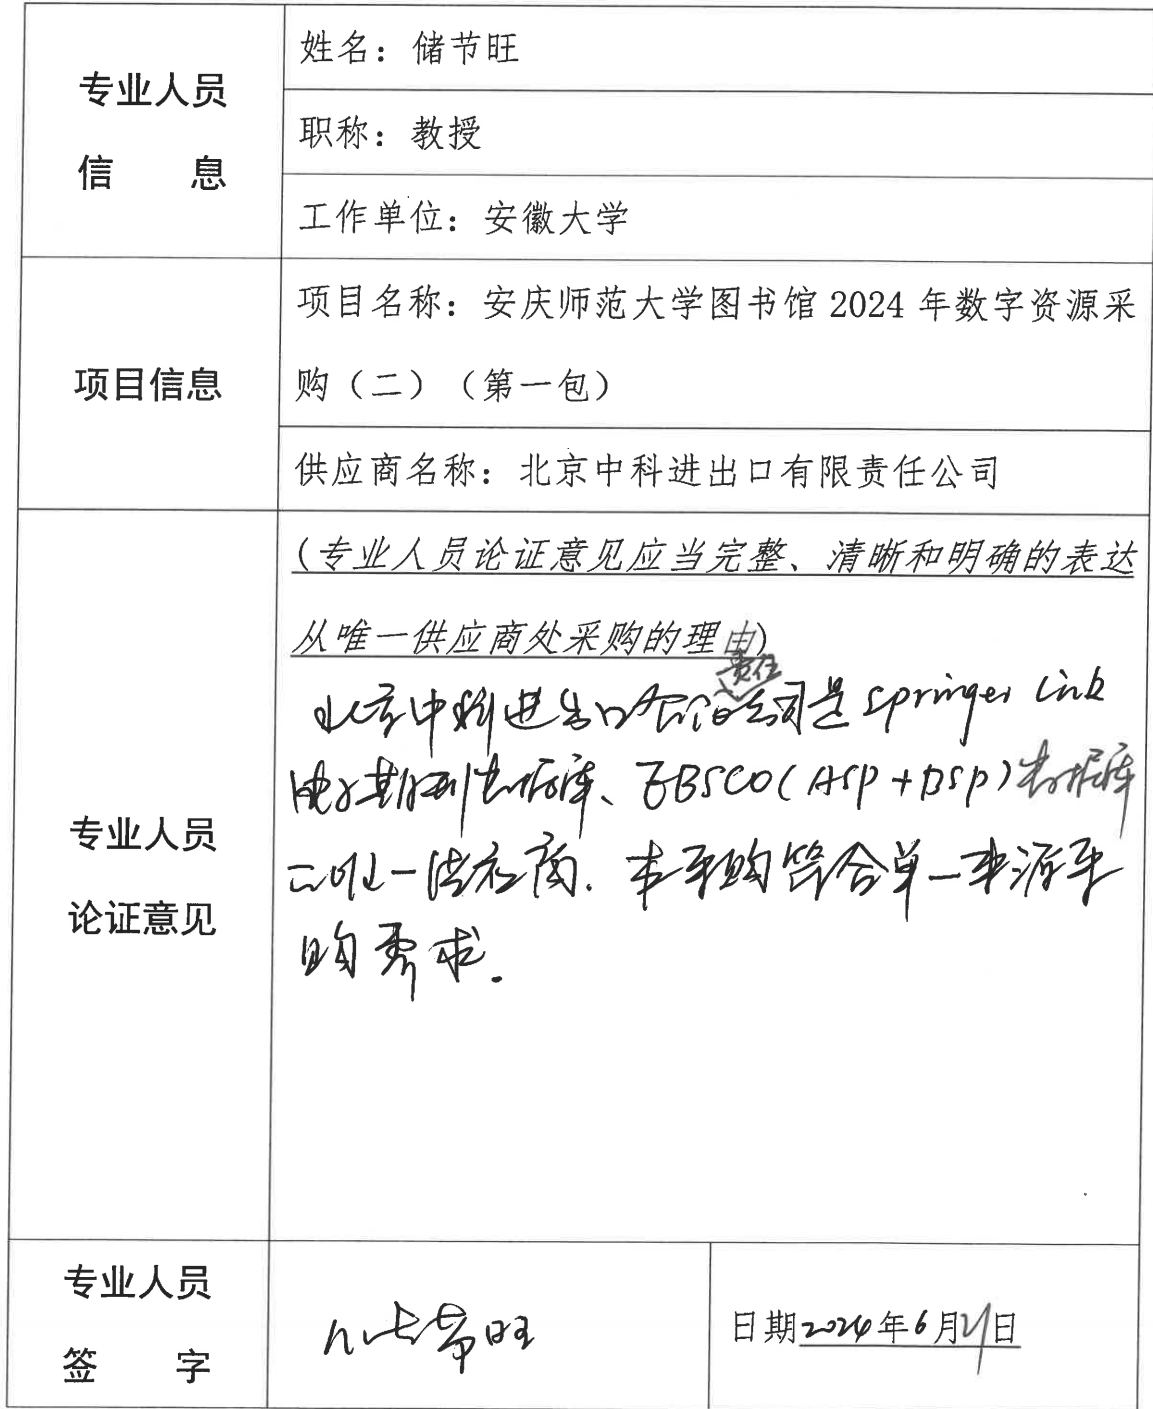 专业人员
信 息
姓名：储节旺
职称：教授
工作单位：安徽大学
项目信息
项目名称：安庆师范大学图书馆 2024 年数字资源采
购（二）（第一包）
供应商名称：北京中科进出口有限责任公司
专业人员
论证意见
(专业人员论证意见应当完整、清晰和明确的表达
从唯一供应商处采购的理由)
责任
北京中科进出口有限公司是 springer Link
电子期刊数据库、EBSCO(ASP+BSP)数据库
之唯一供应商. 本采购符合单一来源采
购需求.
专业人员
签 字
储节旺
日期2024年6月21日